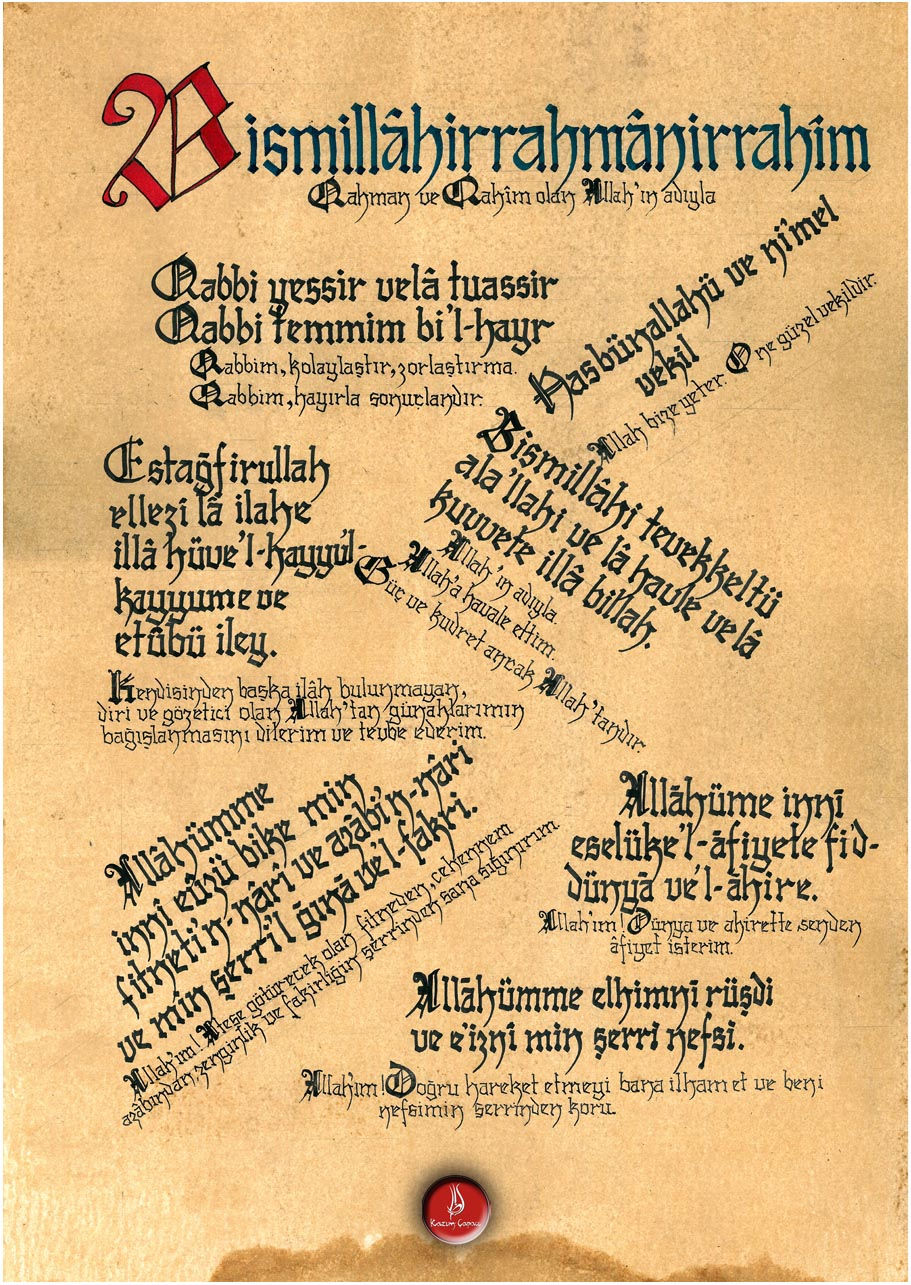 Bismillâhirrahmânirrahîm
Rahman ve Rahîm olan Allah'ın adıyla
Rabbi yessir velâ tuassir
Rabbi temmim bi'l-hayr
Rabbim, kolaylaştır, zorlaştırma.
Rabbim, hayırla sonuçlandır.
Hasbünallahü ve ni'mel
vekil
Allah bize yeter. O ne güzel vekildir.
Estağfirullah
ellezî lâ ilahe
illâ hüve'l-hayyü'l-
kayyume ve
etûbü iley.
Kendisinden başka ilâh bulunmayan,
diri ve gözetici olan Allah'tan günahlarımın
bağışlanmasını dilerim ve tevbe ederim.
Bismillâhi tevekkeltü
ala'llahi ve lâ havle ve lâ
kuvvete illâ billah.
Allah'ın adıyla.
Allah'a havale ettim.
Güç ve kudret ancak Allah'tandır.
Allâhümme
innî eûzü bike min
fitneti'n-nâri ve azâbi'n-nâri
ve min şerri'l ğınâ ve'l-fakri.
Allah'ım! Ateşe götürecek olan fitneden, cehennem
azâbından zenginlik ve fakirliğin şerrinden sana sığınırım
Allāhüme innī
eselüke'l-āfiyete fi'd-
dünyā ve'l-āhire.
Allah'ım! Dünya ve ahirette senden
âfiyet isterim.
Allāhümme elhimnī rüşdi
ve e'iznî min şerri nefsî.
Allah'ım! Doğru hareket etmeyi bana ilham et ve beni
nefsimin şerrinden koru.
Kazım